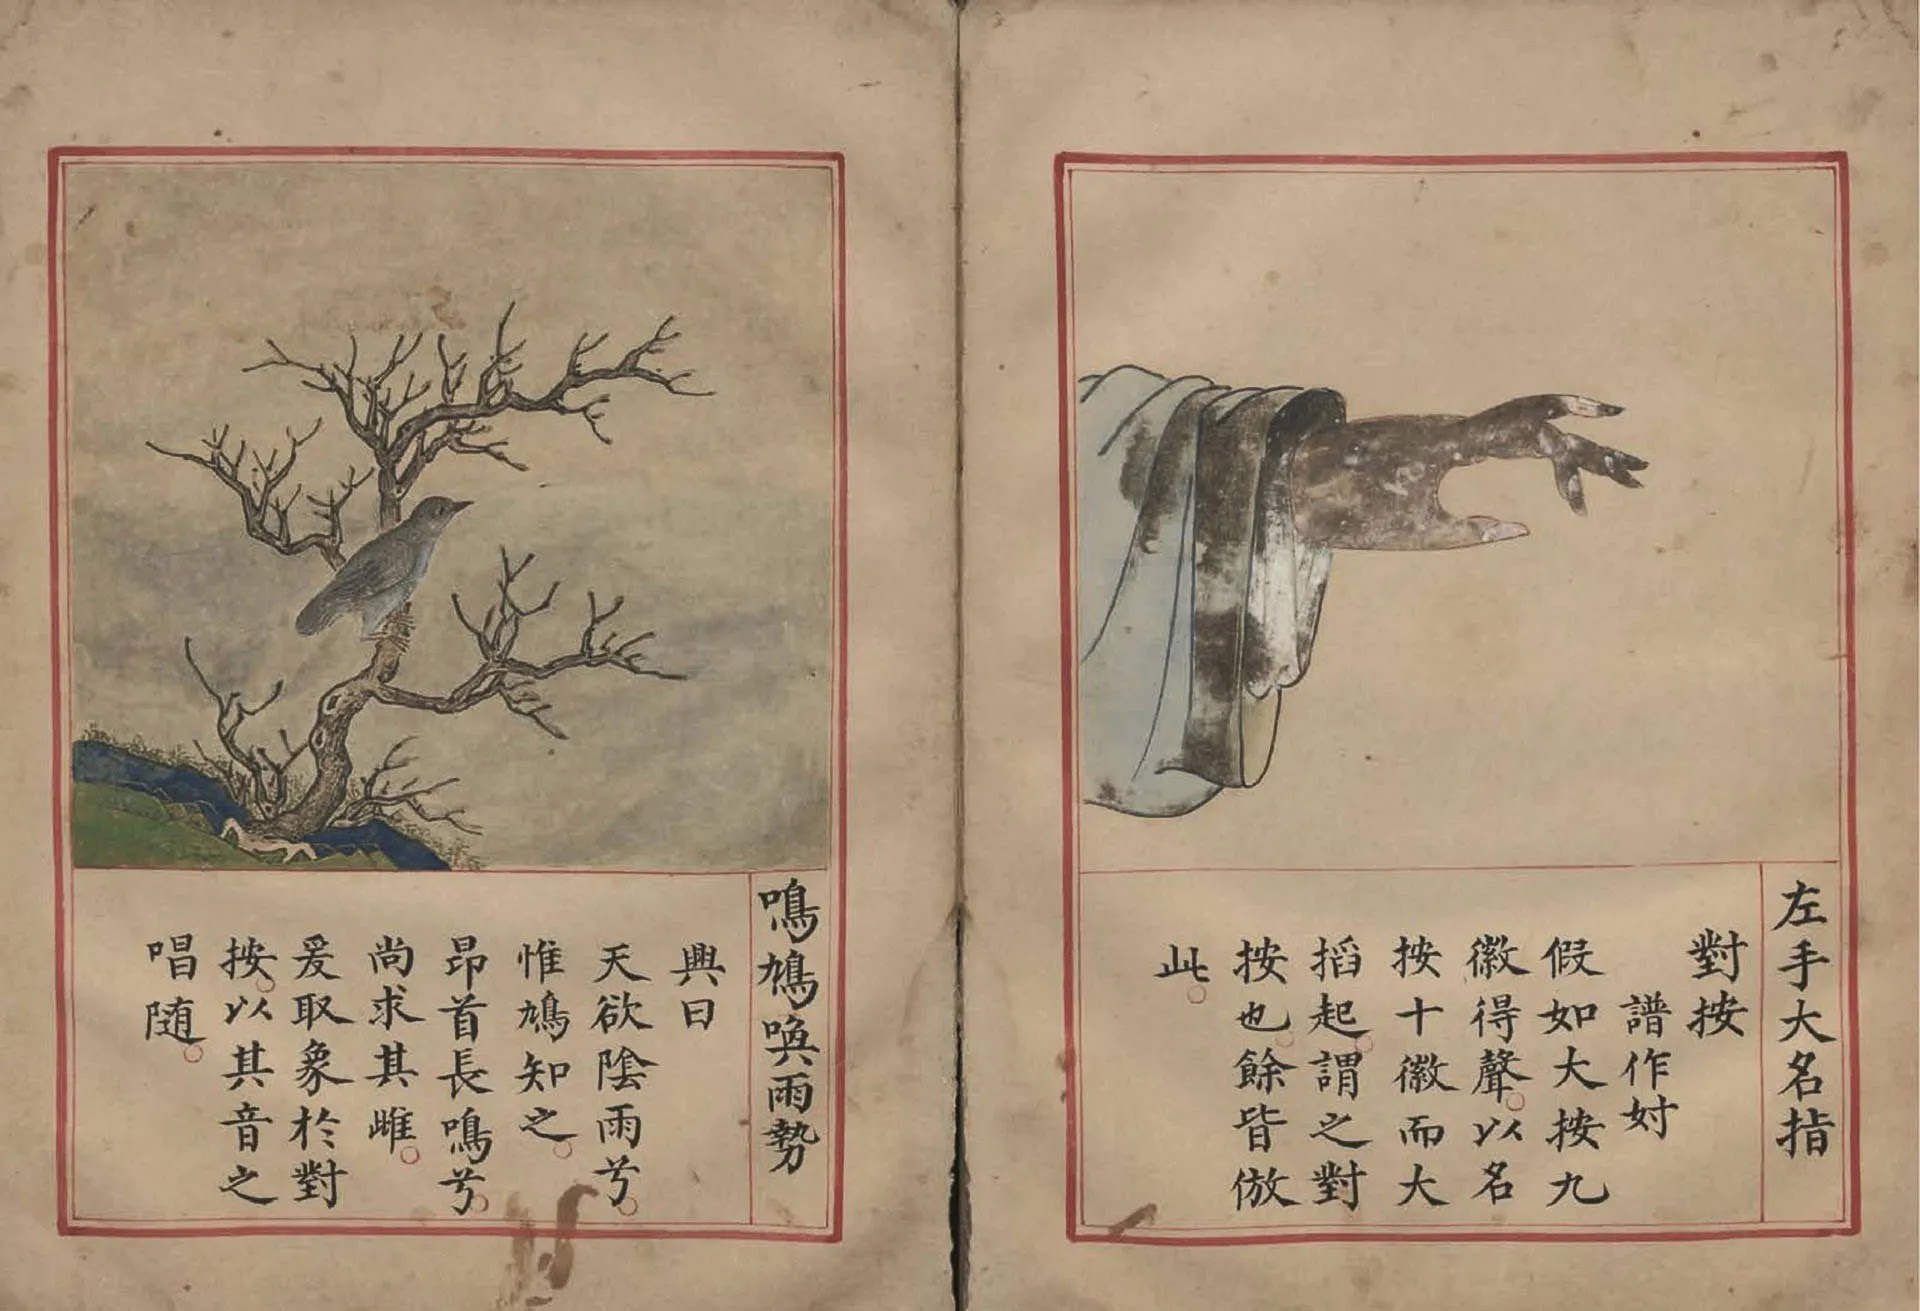 左手大名指
對按
譜作𡬠
假如大按九
徽得聲。以名
按十徽而大
搯起。謂之對
按也。餘皆倣
此。
鳴鳩喚雨勢
興曰
天欲陰雨兮。
惟鳩知之。
昂首長鳴兮。
尚求其雌。
爰取象於對
按。以其音之
唱随。